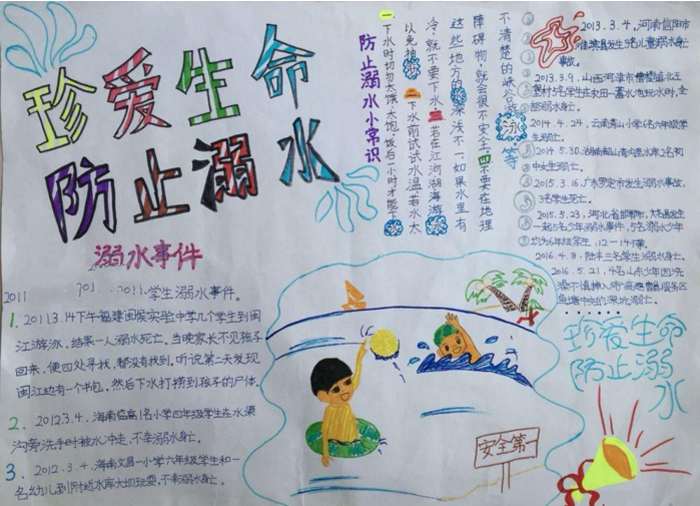 珍爱生命
防止溺水
溺水事件
2011
学生溺水事件。
1. 2011 3.14下午福建闽侯实验中学几个学生到闽
江游泳，结果一人溺水死亡。当晚家长不见孩子
回来，便四处寻找，都没有找到。听说第二天发现
闽江边有一个书包，然后下水打捞到孩子的尸体。
2. 2012.3.4.海南临高1名小学四年级学生在水渠
沟旁洗手时被水冲走，不幸溺水身亡。
3. 2012.3.4.海南文昌一小学六年级学生和一
名幼儿到附近水库大坝玩耍，不幸溺水身亡。
防止溺水小常识
一下水时切勿太饿、太饱。饭后一小时才能下水
以免抽筋 二下水前试试水温，若水太
冷，就不要下水 三若在江河湖海游泳
这些地方的水深浅不一，如果水里有
障碍物，就会很不安全 四不要在地理
不清楚的峡谷游泳等
2013.3.4，河南信阳市
淮滨县发生3名儿童溺水身亡
事故。
2013.3.9.山西河津市僧楼镇北王
堡村5名学生在农田一蓄水池玩水时，全
部溺水身亡。
2014.4.24，云南青山小学6名六年级学
生溺亡。
2014.5.30.湖南韶山湾内里水库2名初
中女生溺亡。
2015.3.16.广东罗定市发生溺水事故，
3名学生死亡。
2015.5.23，河北省邯郸市，大名县发生
一起5名少年溺水事件，5名溺水少年
均为6年级学生，12—14岁。
2016.4.8.陆丰三名学生溺水身亡。
2016.5.21.4名山东少年因洗
澡不慎
鱼塘中央的深坑溺亡。
珍爱生命
防止溺
水
安全第一